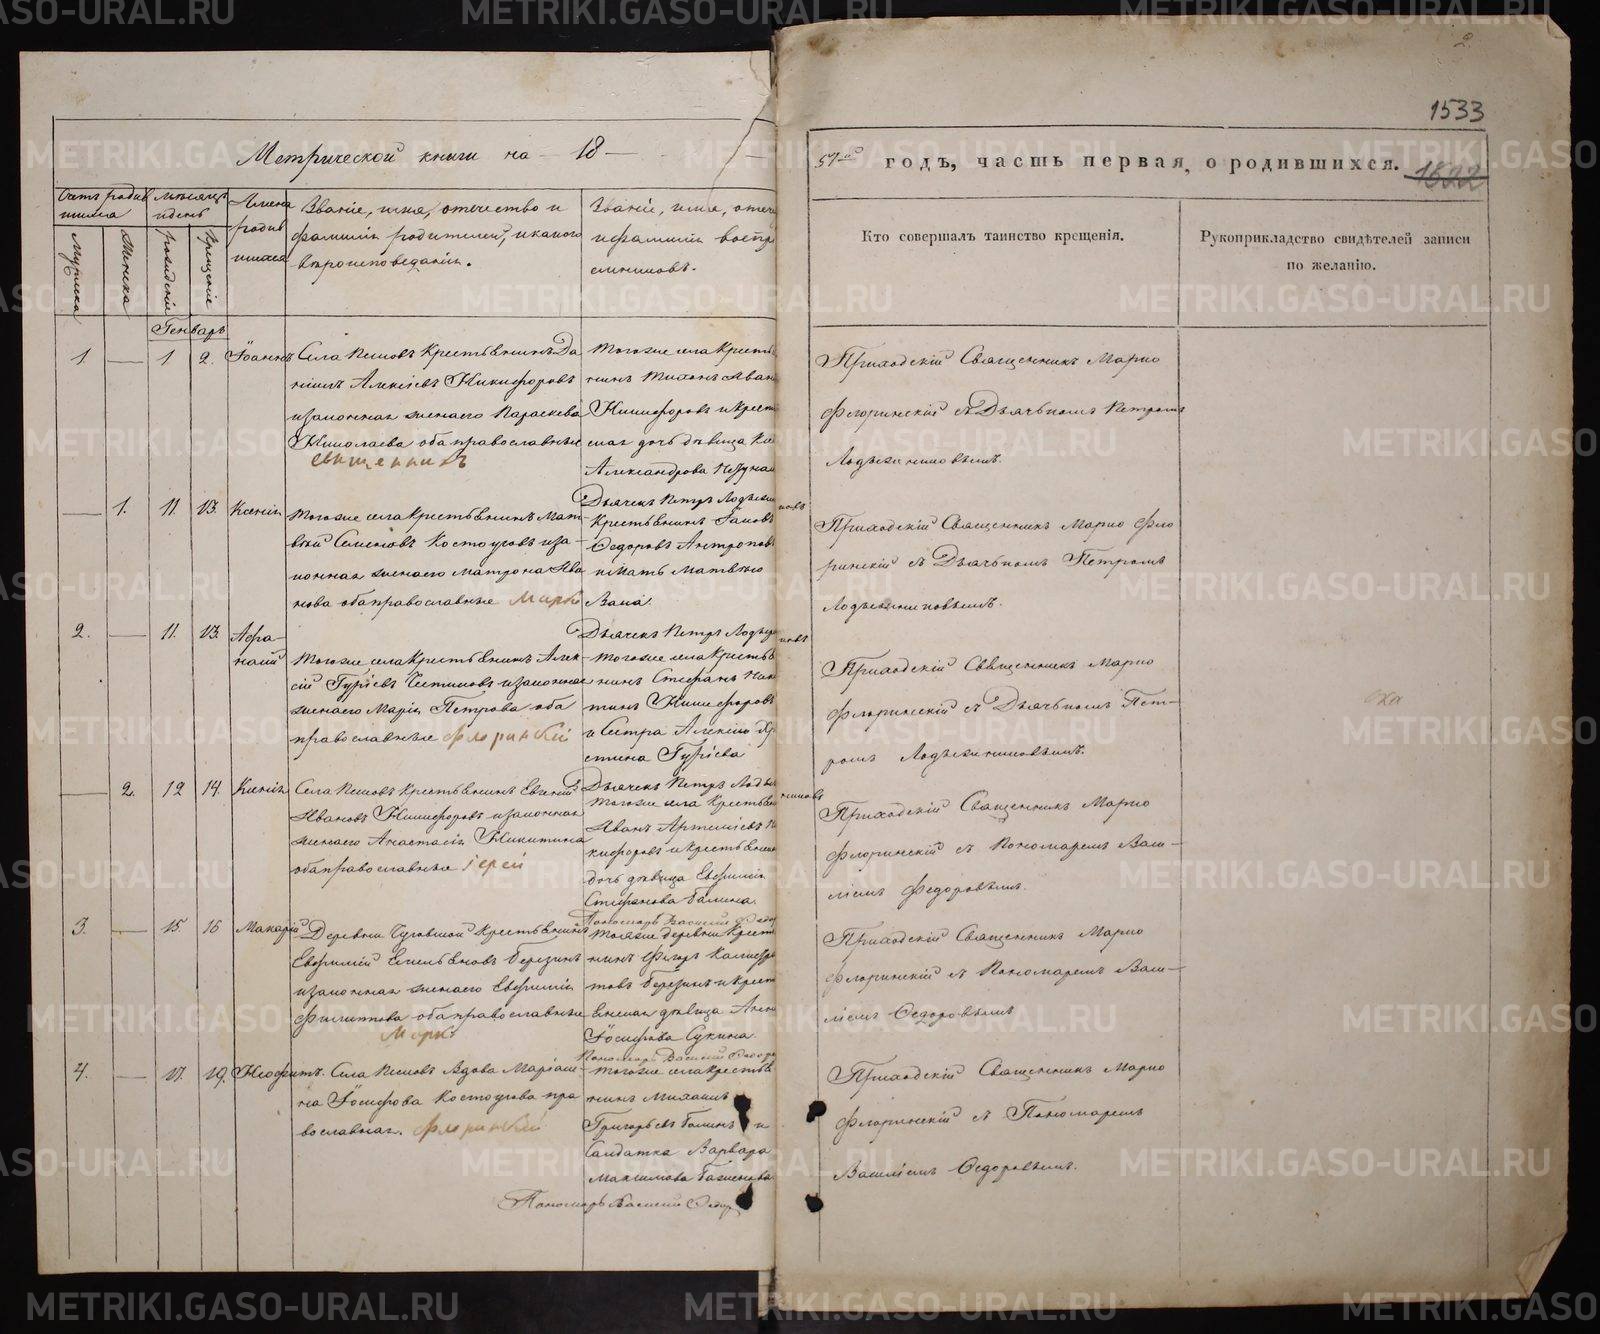 1533
Метрической книги на 18
57-й годъ, часть первая, о родившихся.
1822
Счетъ родив
шихся
Мѣсяцъ
и день
Имена
родив
шихся
Званіе, имя, отчество и
фамилія родителей, и какого
вѣроисповеданія.
Званіе, имя, отче
и фамилія воспр
емниковъ.
Мужеска
Женска
рожденіе
крещеніе
Кто совершалъ таинство крещенія.
Рукоприкладство свидѣтелей записи
по желанію.
Генварь
1 — 1 2. Іоаннъ
Села крестьянинъ Да
ніилъ Алексіевъ Никифоровъ
и законная жена его Параскева
Николаева оба православные
священникъ
Тогоже села крестья
нинъ Тихонъ Иван
Никифоровъ и крест
дочь дѣвица
Александрова
Дьячекъ Петръ
Приходскій Священникъ Марко
Флоринскій съ Дьячькомъ Петромъ
— 1. 11. 13. Ксенія
Тогоже села крестьянинъ Мат
вѣй Семеновъ Костоусовъ и за
конная жена его Матрона Ива
нова оба православные Марко
Крестьянинъ Іаковъ
Федоровъ Антропов
и мать Матвѣю
Приходскій Священникъ Марко Фло
ринскій съ Дьячькомъ Петромъ
2. — 11. 13. Афа-
насій
Тогоже села крестьянинъ Алек
сій Гуріевъ и законная
жена его Марія Петрова оба
православные Флоринскій
Дьячекъ Петръ
Тогоже села крестья
нинъ Стефанъ
Никифоровъ
и Сестра Алексію Хри
стина Гуріева
Приходскій Священникъ Марко
Флоринскій съ Дьячькомъ Пет-
ромъ
— 2. 12 14. Ксенія
Села крестьянинъ Евгеній
Ивановъ Никифоровъ и законная
жена его Анастасія Никитина
оба православные Іерей
Дьячекъ Петръ
Тогоже села крестьян
Иванъ Артеміевъ Ни
кифоровъ и крестьян
дочь дѣвица Евфимія
Стефанова Балина.
Приходскій Священникъ Марко
Флоринскій съ Пономаремъ Васи-
ліемъ Федоровымъ.
3. — 15 16 Макарій
Деревни крестьянинъ
Евфимій Емельяновъ Березинъ
и законная жена его Евфимія
Филиппова оба православные
Марко
Пономарь Василій Федор
Тояже деревни крест
нинъ Федоръ
товъ Березинъ и крест
янская дѣвица Анна
Іосифова Сукина.
Приходскій Священникъ Марко
Флоринскій съ Пономаремъ Васи-
ліемъ Федоровымъ
4. — 17. 19. Неофитъ.
Села вдова Маріам
на Іосифова Костоусова пра
вославная. Флоринскій
Пономарь Василій Федоров
Тогоже села крестья
нинъ Михаилъ
Григорьевъ Балинъ и
Салдатка Варвара
Максимова
Пономарь Василій Федор
Приходскій Священникъ Марко
Флоринскій съ Пономаремъ
Василіемъ Федоровымъ.
METRIKI.GASO-URAL.RU